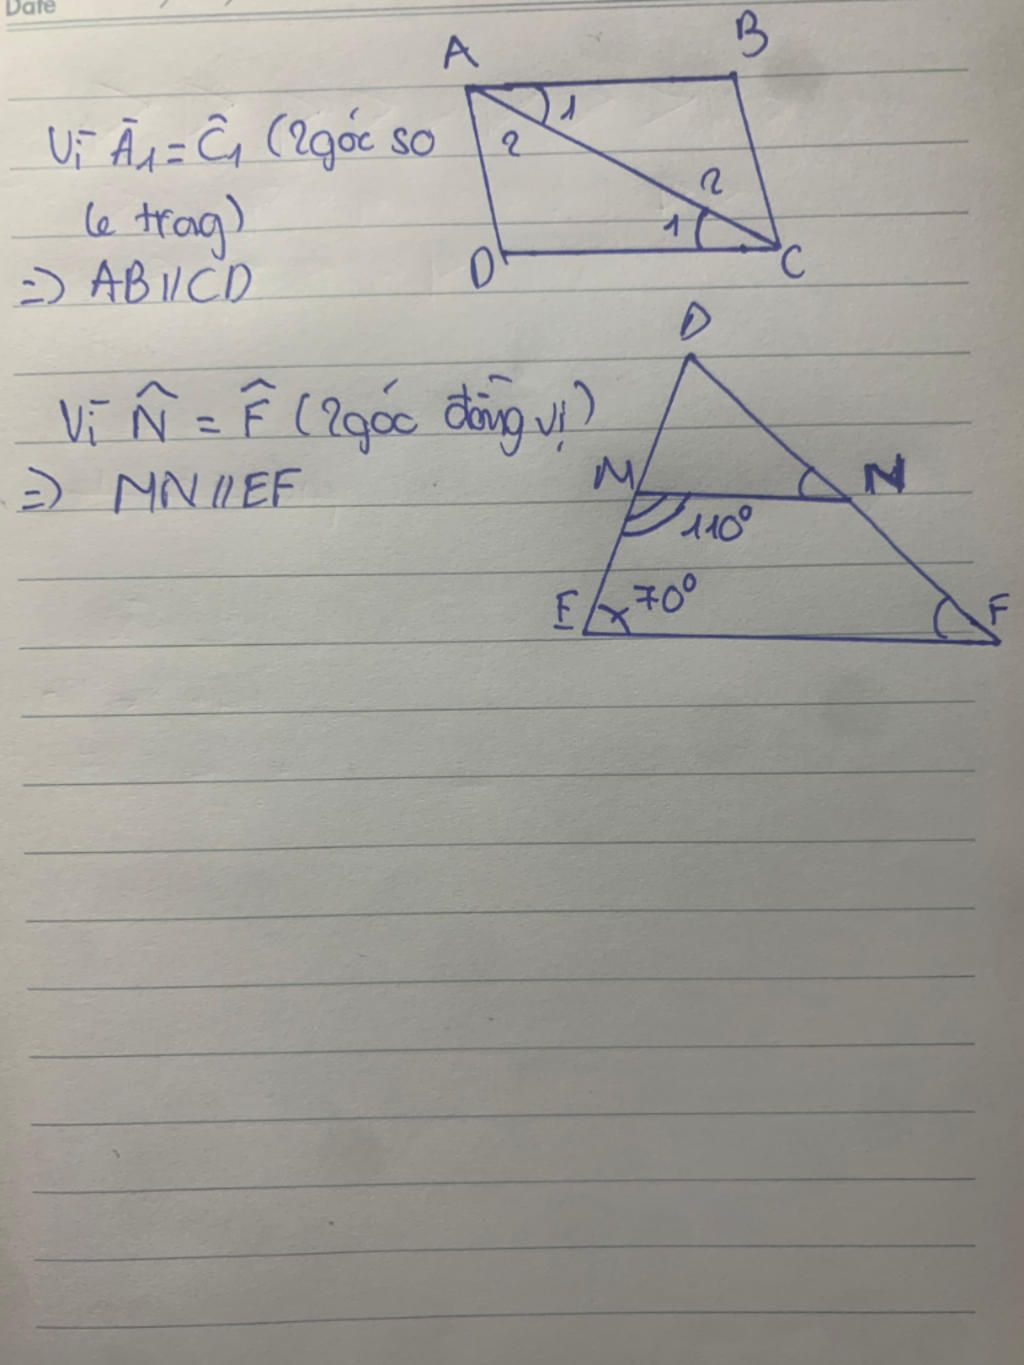 Date
A
B
Vì Â1 = Ĉ1 (2góc so
le trag)
=> AB//CD
1
2
2
1
D
C
D
Vì N̂ = F̂ (2góc đồng vị)
=> MN//EF
M
N
110°
E
70°
F